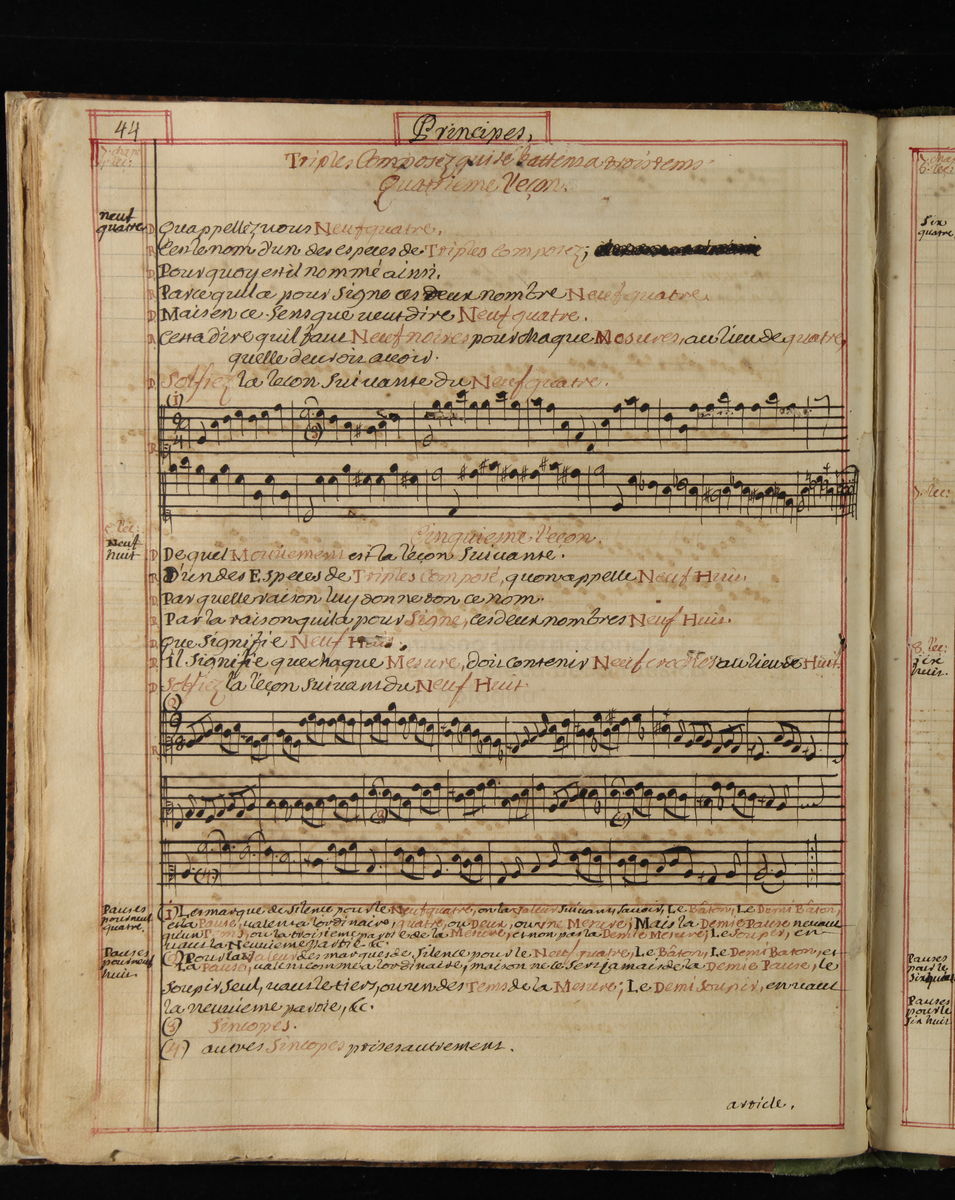 44
Principes,
7. chap:
4. lec:
Triples Composez qui se battent a trois tems.
Quatrieme Leçon.
neuf
quatre
D Qu'appellez vous Neuf quatre.
R C'est le nom d'un des especes de Triples Composez;
D Pourquoy est il nommé ainsi.
R Parce qu'il a pour Signe ces deux nombre Neuf quatre
D Mais en ce sens que veut dire Neuf quatre.
R C'est a dire qu'il faut Neuf noires pour chaque Mesures, au lieu de quatre,
qu'elle devroit avoir.
D Solfiez la leçon Suivante du Neuf quatre.
(1)
9
4
(3)
R
5. lec:
Neuf
huit
Cinquieme Leçon.
D De quel Mouvement est la leçon Suivante.
R D'un des Especes de Triples Composé, qu'on appelle Neuf Huit.
D Par quelle raison luy donne t'on ce nom.
R Par la raison qu'il a pour Signe, ces deux nombres Neuf Huit.
D Que Signifie Neuf Huit.
R Il Signifie que chaque Mesure, doit contenir Neuf croches au lieu de Huit.
D Solfiez la leçon Suivant du Neuf Huit
(2)
9
8
R
(3)
(3)
(4)
Pauses
pour neuf
quatre.
(1) Les marque de Silence pour le Neuf quatre, on la valeur Suivant, Savoir, Le Bâton, Le Demi Bâton,
et la Pause, valent a l'ordinaire, quatre, ou Deux, ou Une Mesure; Mais la Demie Pause ne vaut
qu'un Tems, ou la troisieme partie de la Mesure, et non pas la Demie Mesure; Le Soupir, en
vaut la Neuvieme partie &c.
Pauses
pour neuf
huit.
(2) Pour la Valeur des marques de Silence pour le Neuf quatre, Le Bâton, Le Demi Baton, et
La Pause, valent comme a l'ordinaire, mais on ne se sert jamais de la Demie Pause, le
Soupir Seul, vaut le tiers, ou un des Tems de la Mesure; Le Demi Soupir, en vaut
la neuvieme partie, &c.
(3) Sincopes.
(4) autres Sincopes prises autrement.
article.
7. chap
6. lec:
Six
quatre
7. lec:
8. lec:
Six
huit.
Pauses
pour le
Six quatre
Pauses
pour le
Six huit